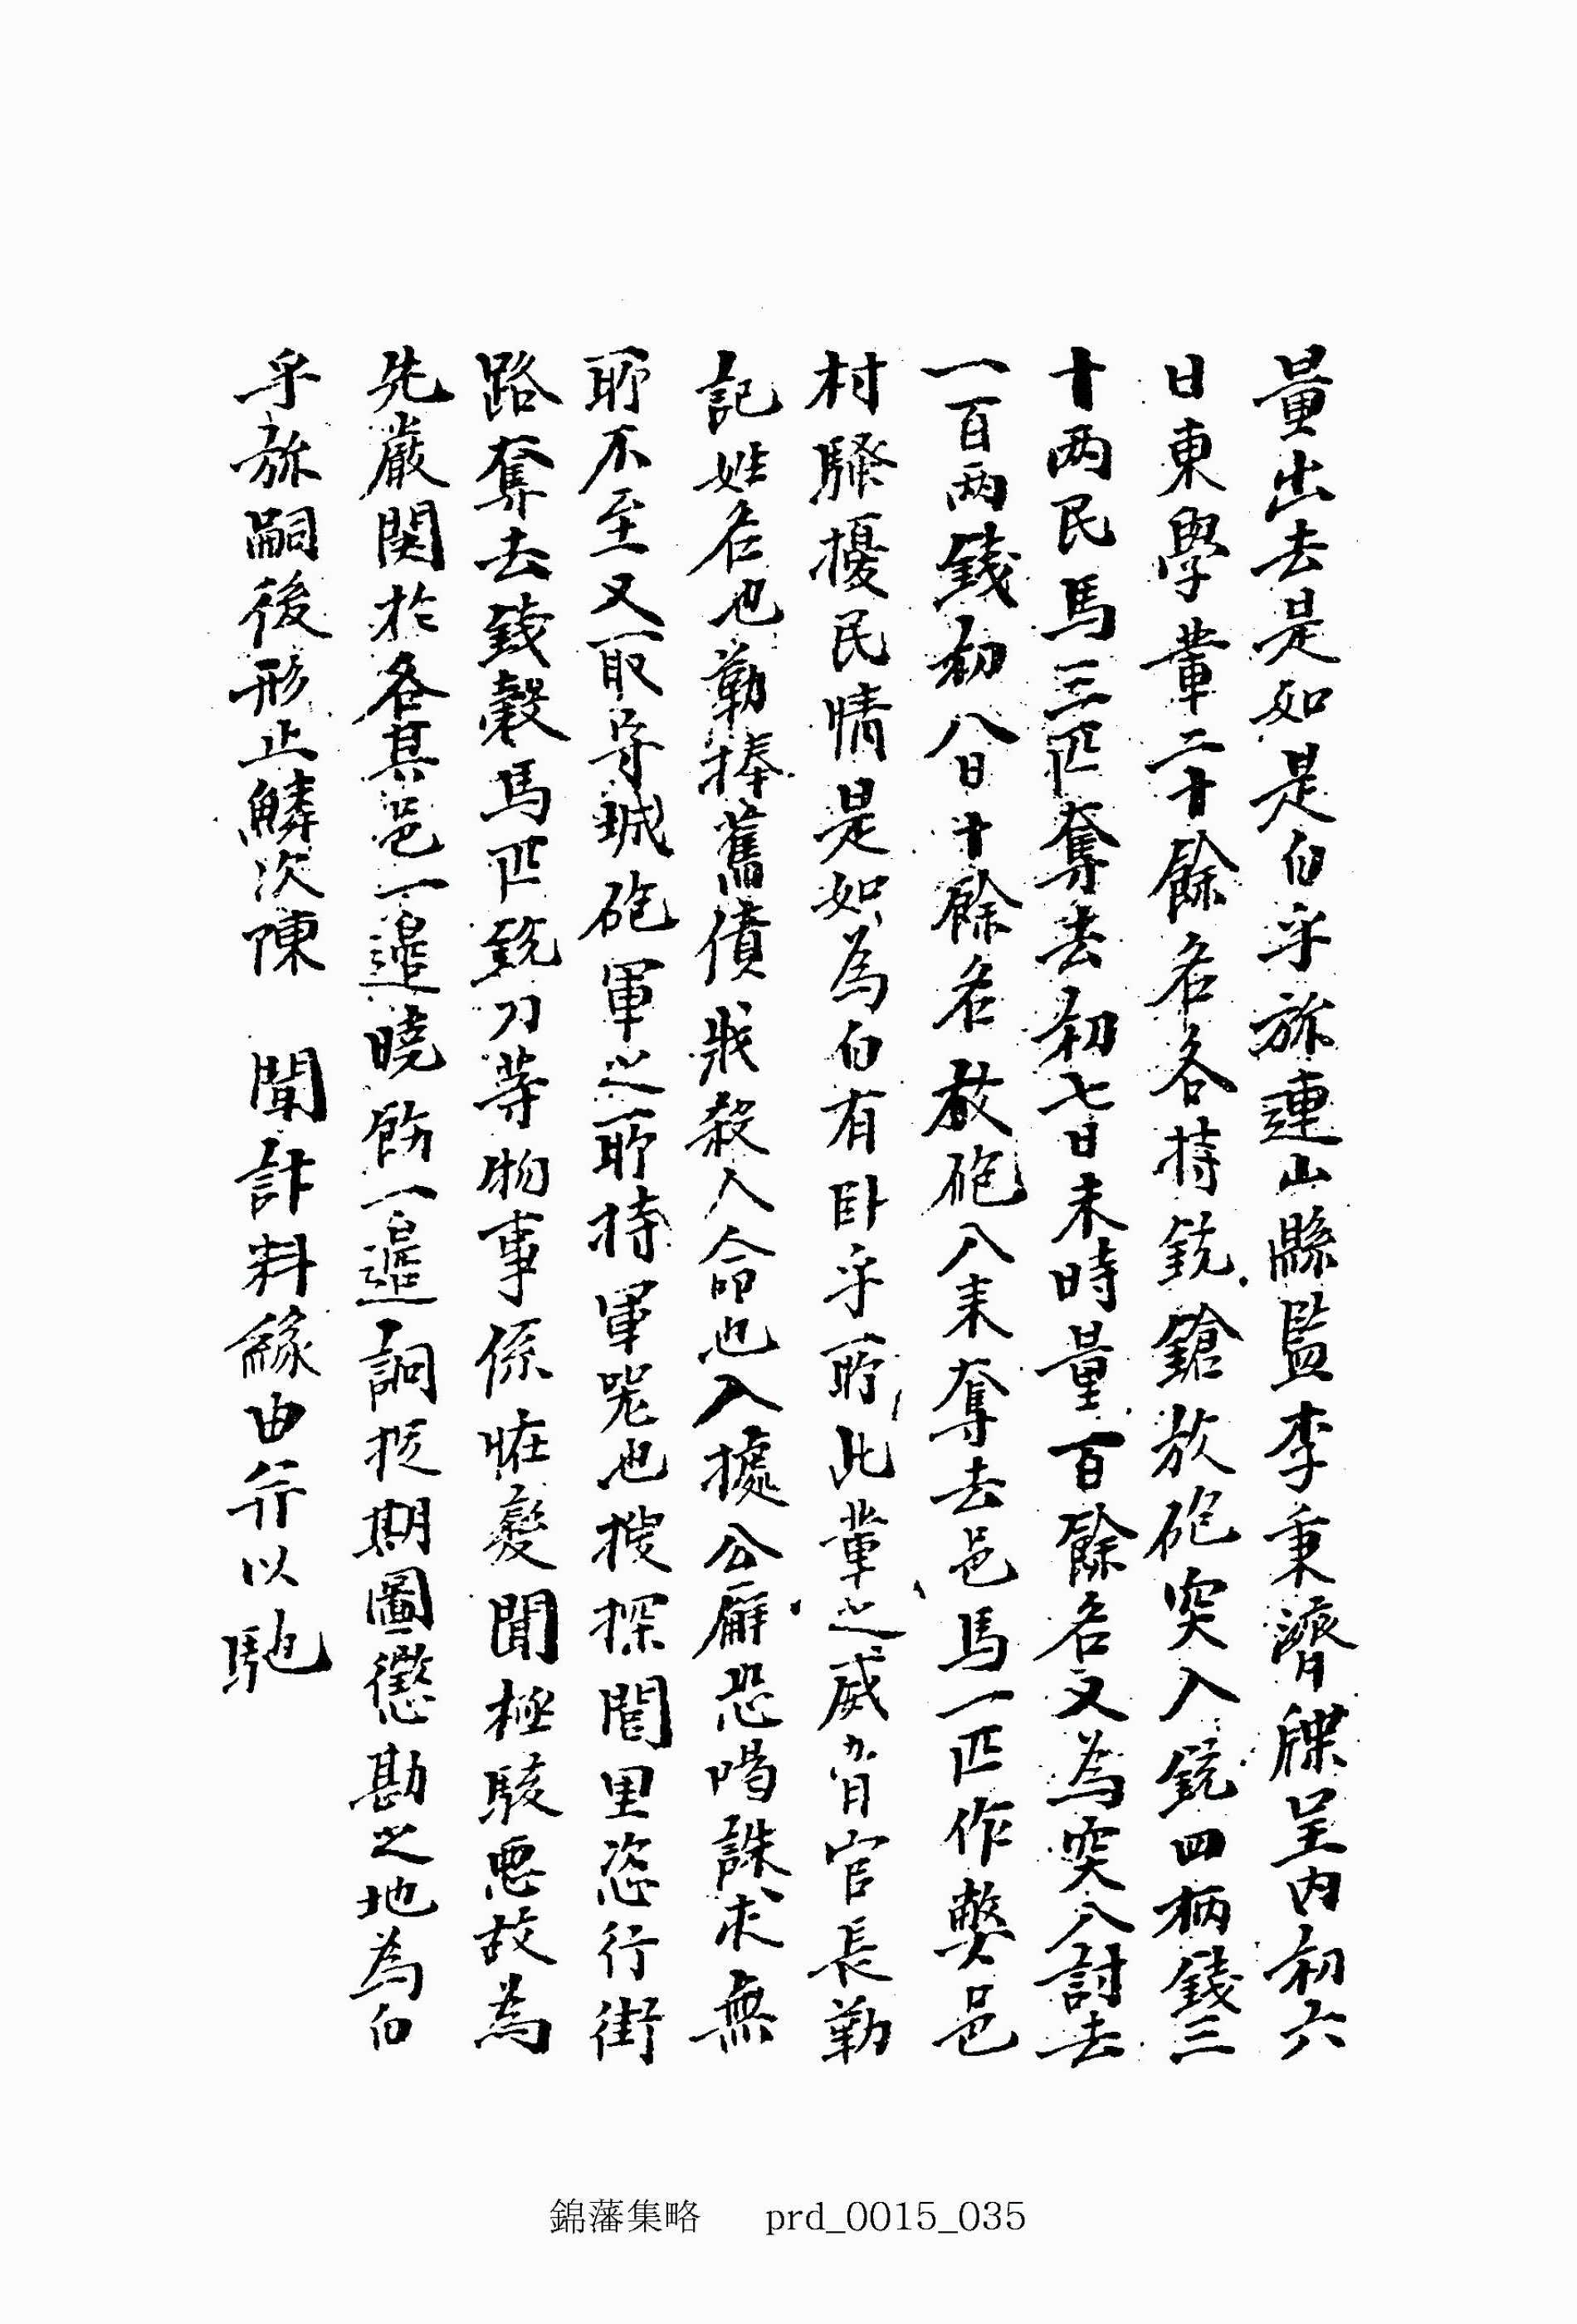 量出去是如是白乎旀連山縣監李秉濟牒呈內初六
日東學輩二十餘名各持銃鎗放砲突入銃四柄錢三
十両民馬三匹奪去初七日未時量百餘名又為突入討去
一百両錢初八日十餘名放砲入来奪去邑馬一匹作弊邑
村騷擾民情是如為白有卧乎所此輩之威脅官長勒
記姓名也勒捧舊債戕殺人命也入據公廨恐喝誅求無
所不至又取守城砲軍之所持軍器也搜探閭里恣行街
路奪去錢穀馬匹銃刀等物事係怪變聞極駭惡故為
先嚴関於各其邑一邊曉飭一邊詗捉期圖懲勘之地為白
乎旀嗣後形止鱗次陳　聞計料緣由幷以馳
錦藩集略　prd_0015_035